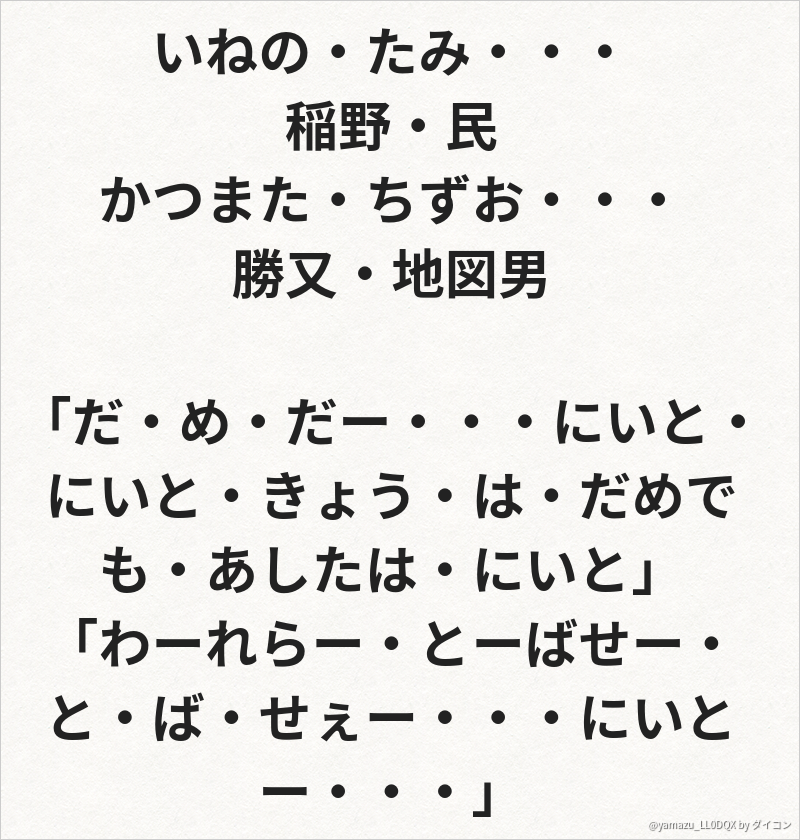 いねの・たみ・・・
稲野・民
かつまた・ちずお・・・
勝又・地図男
「だ・め・だー・・・にいと・
にいと・きょう・は・だめで
も・あしたは・にいと」
「わーれらー・とーばせー・
と・ば・せぇー・・・にいと
ー・・・」
@yamazu_LL0DQX by ダイコン